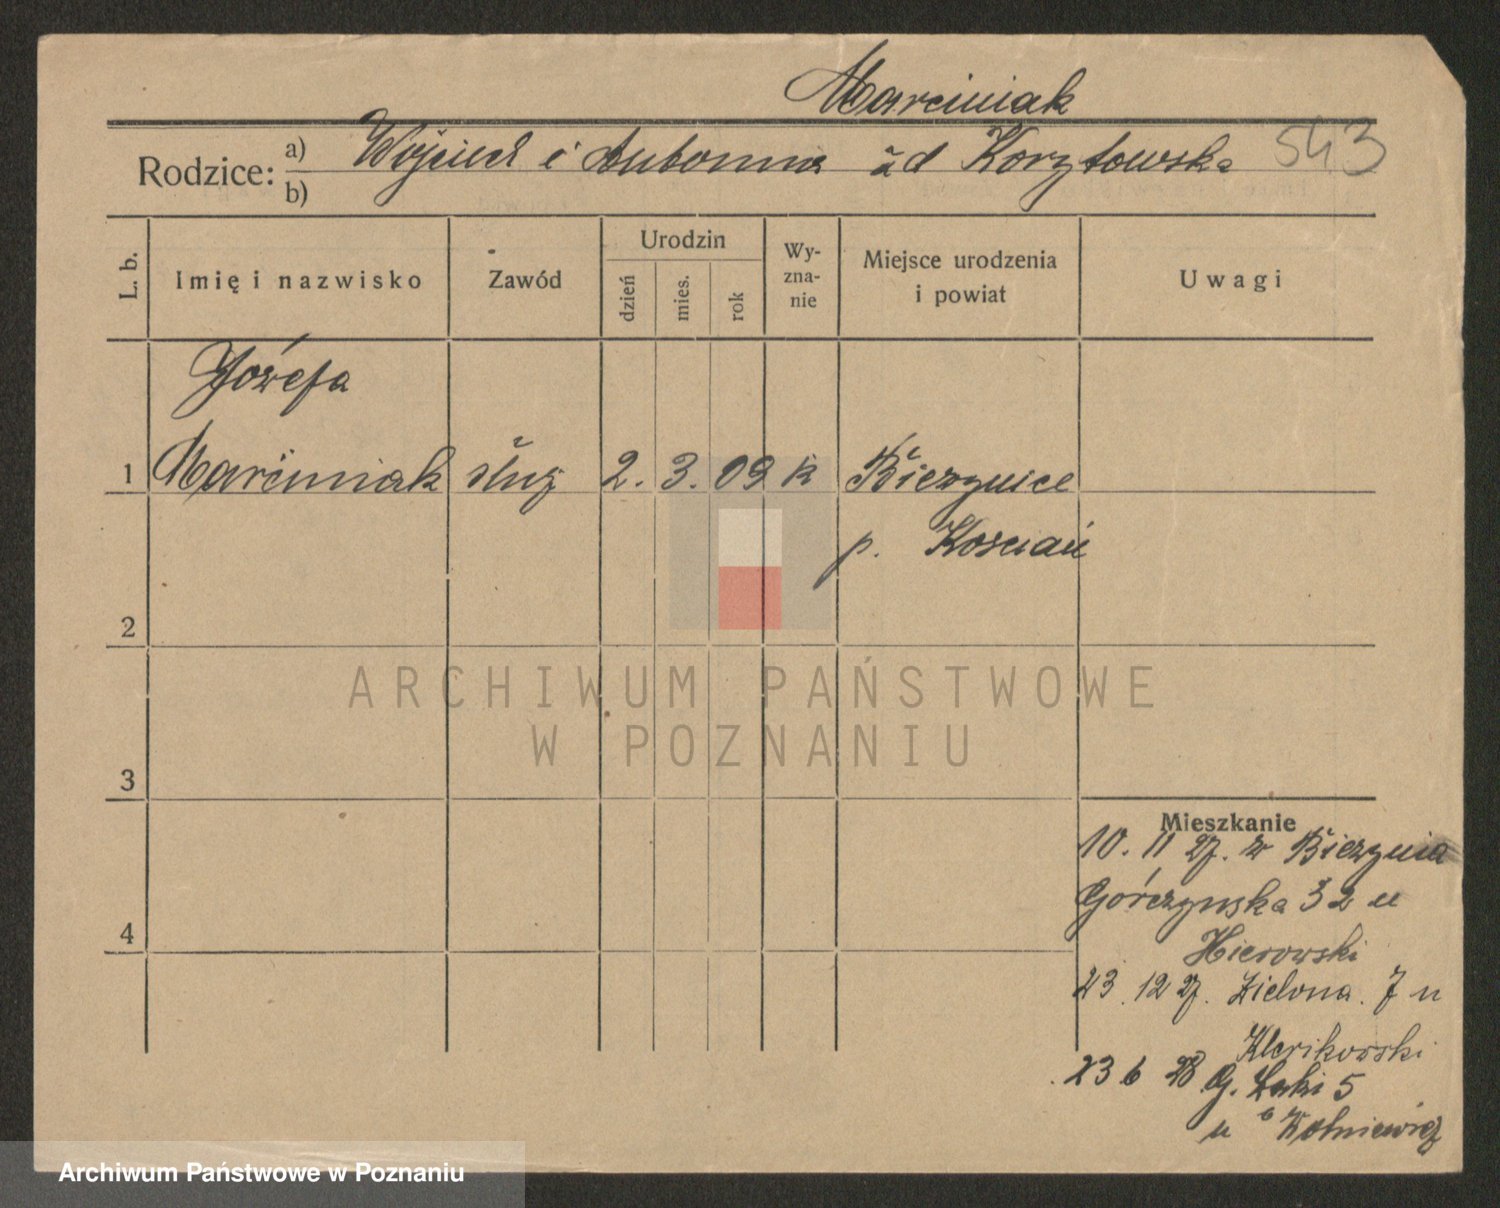 Marciniak
Rodzice: a) Wojciech i Antonina ūd Korytowska 543
b)
L. b.
Imię i nazwisko
Zawód
Urodzin
dzień
mies.
rok
Wy-
zna-
nie
Miejsce urodzenia
i powiat
Uwagi
Józefa
1 Marciniak służ 2. 3. 09 k Bieżynice
p. Kościań
2
3
4
Mieszkanie
10. 11 27. z Bieżynia
Górczyńska 32 u
Hierowski
23. 12 27. Zielona. 7 u
Klerikowski
23 6 28 G. Łąki 5
u
ARCHIWUM PAŃSTWOWE
W POZNANIU
Archiwum Państwowe w Poznaniu